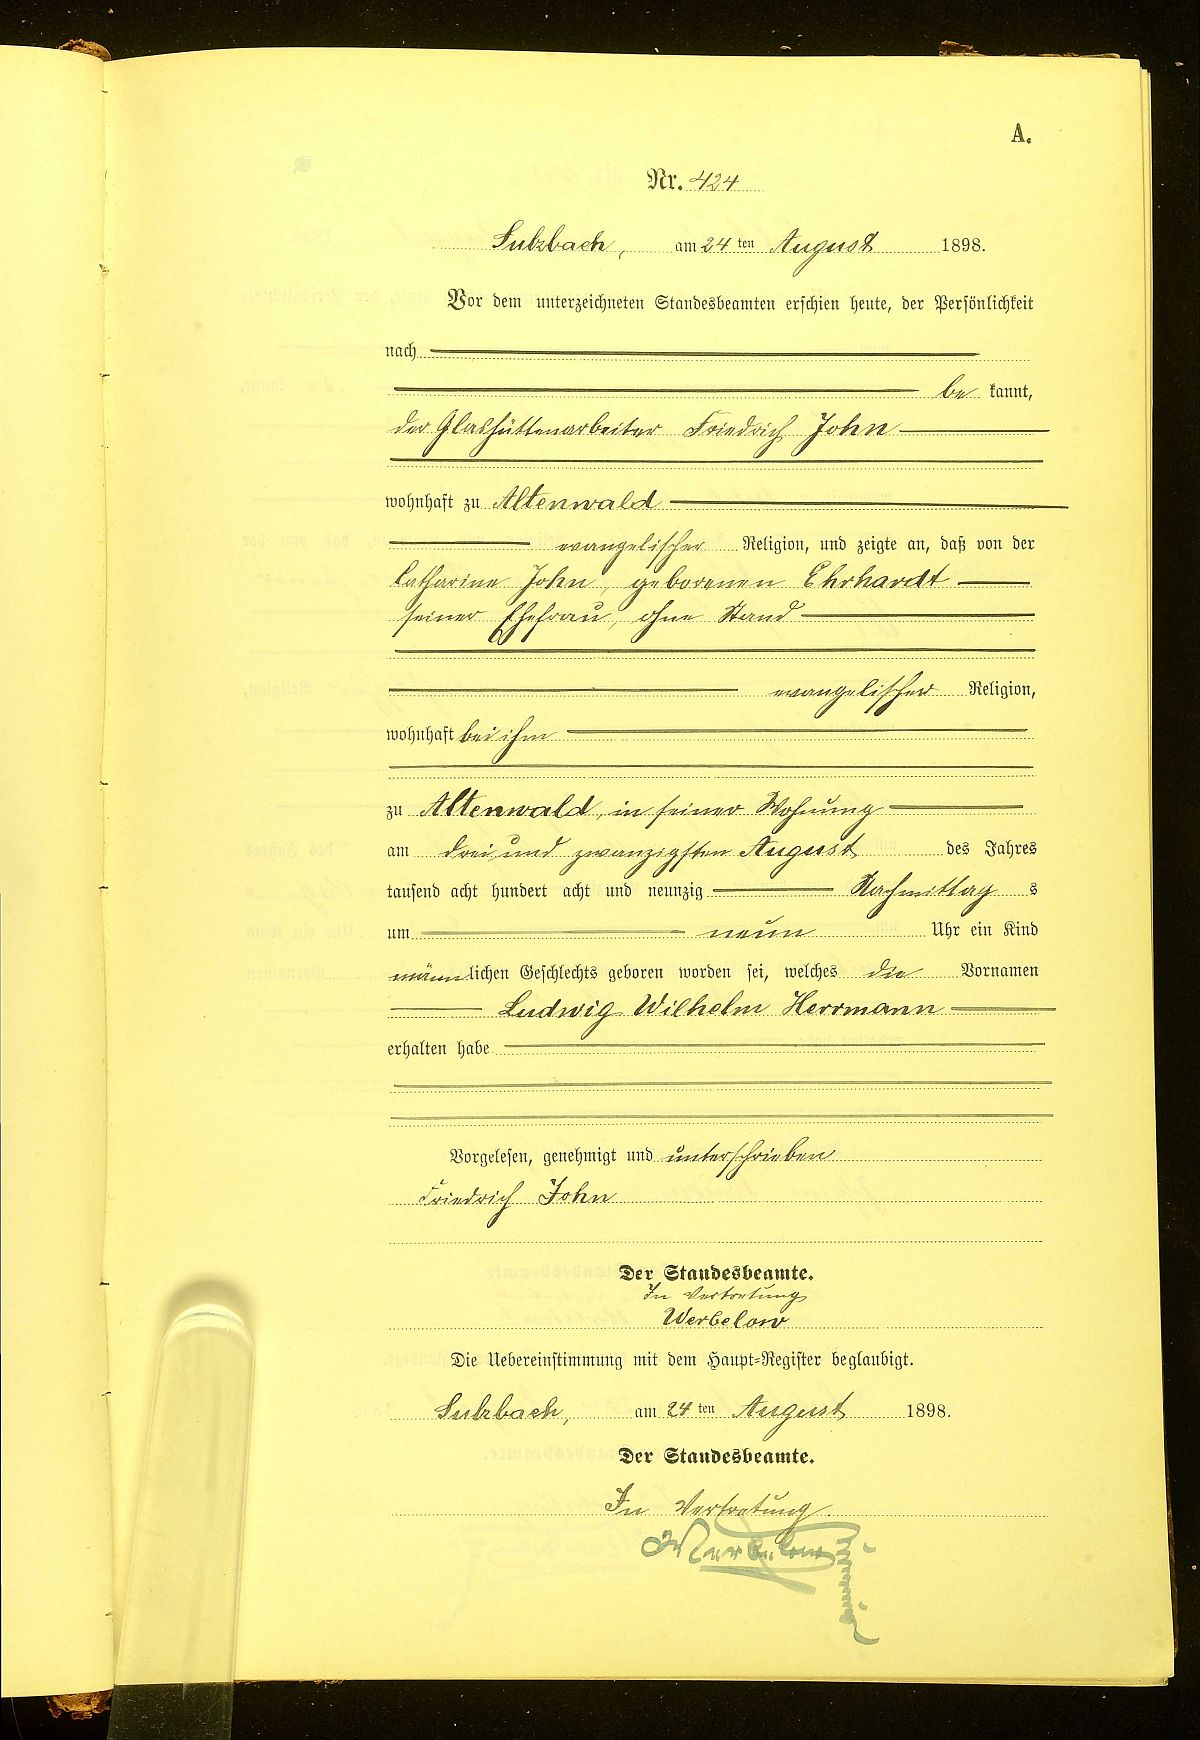 A.
Nr. 424
Sulzbach, am 24 ten August 1898.
Vor dem unterzeichneten Standesbeamten erschien heute, der Persönlichkeit
nach
be kannt,
der Glashüttenarbeiter Friedrich John
wohnhaft zu Altenwald
evangelischer Religion, und zeigte an, daß von der
Catharina John, geborenen Ehrhardt
seiner Ehefrau, ohne Stand
evangelischer Religion,
wohnhaft bei ihm
zu Altenwald, in seiner Wohnung
am drei und zwanzigsten August des Jahres
tausend acht hundert acht und neunzig Nachmittag s
um neun Uhr ein Kind
männlichen Geschlechts geboren worden sei, welches die Vornamen
Ludwig Wilhelm Herrmann
erhalten habe
Vorgelesen, genehmigt und unterschrieben
Friedrich John
Der Standesbeamte.
In Vertretung
Werbelow
Die Uebereinstimmung mit dem Haupt-Register beglaubigt.
Sulzbach, am 24 ten August 1898.
Der Standesbeamte.
In Vertretung
Werbelow